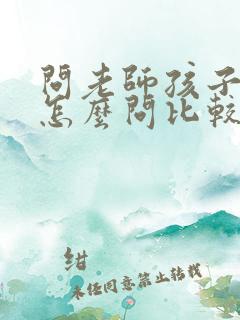 問老師孩子
怎麼問比較
紺
未經同意禁止轉載